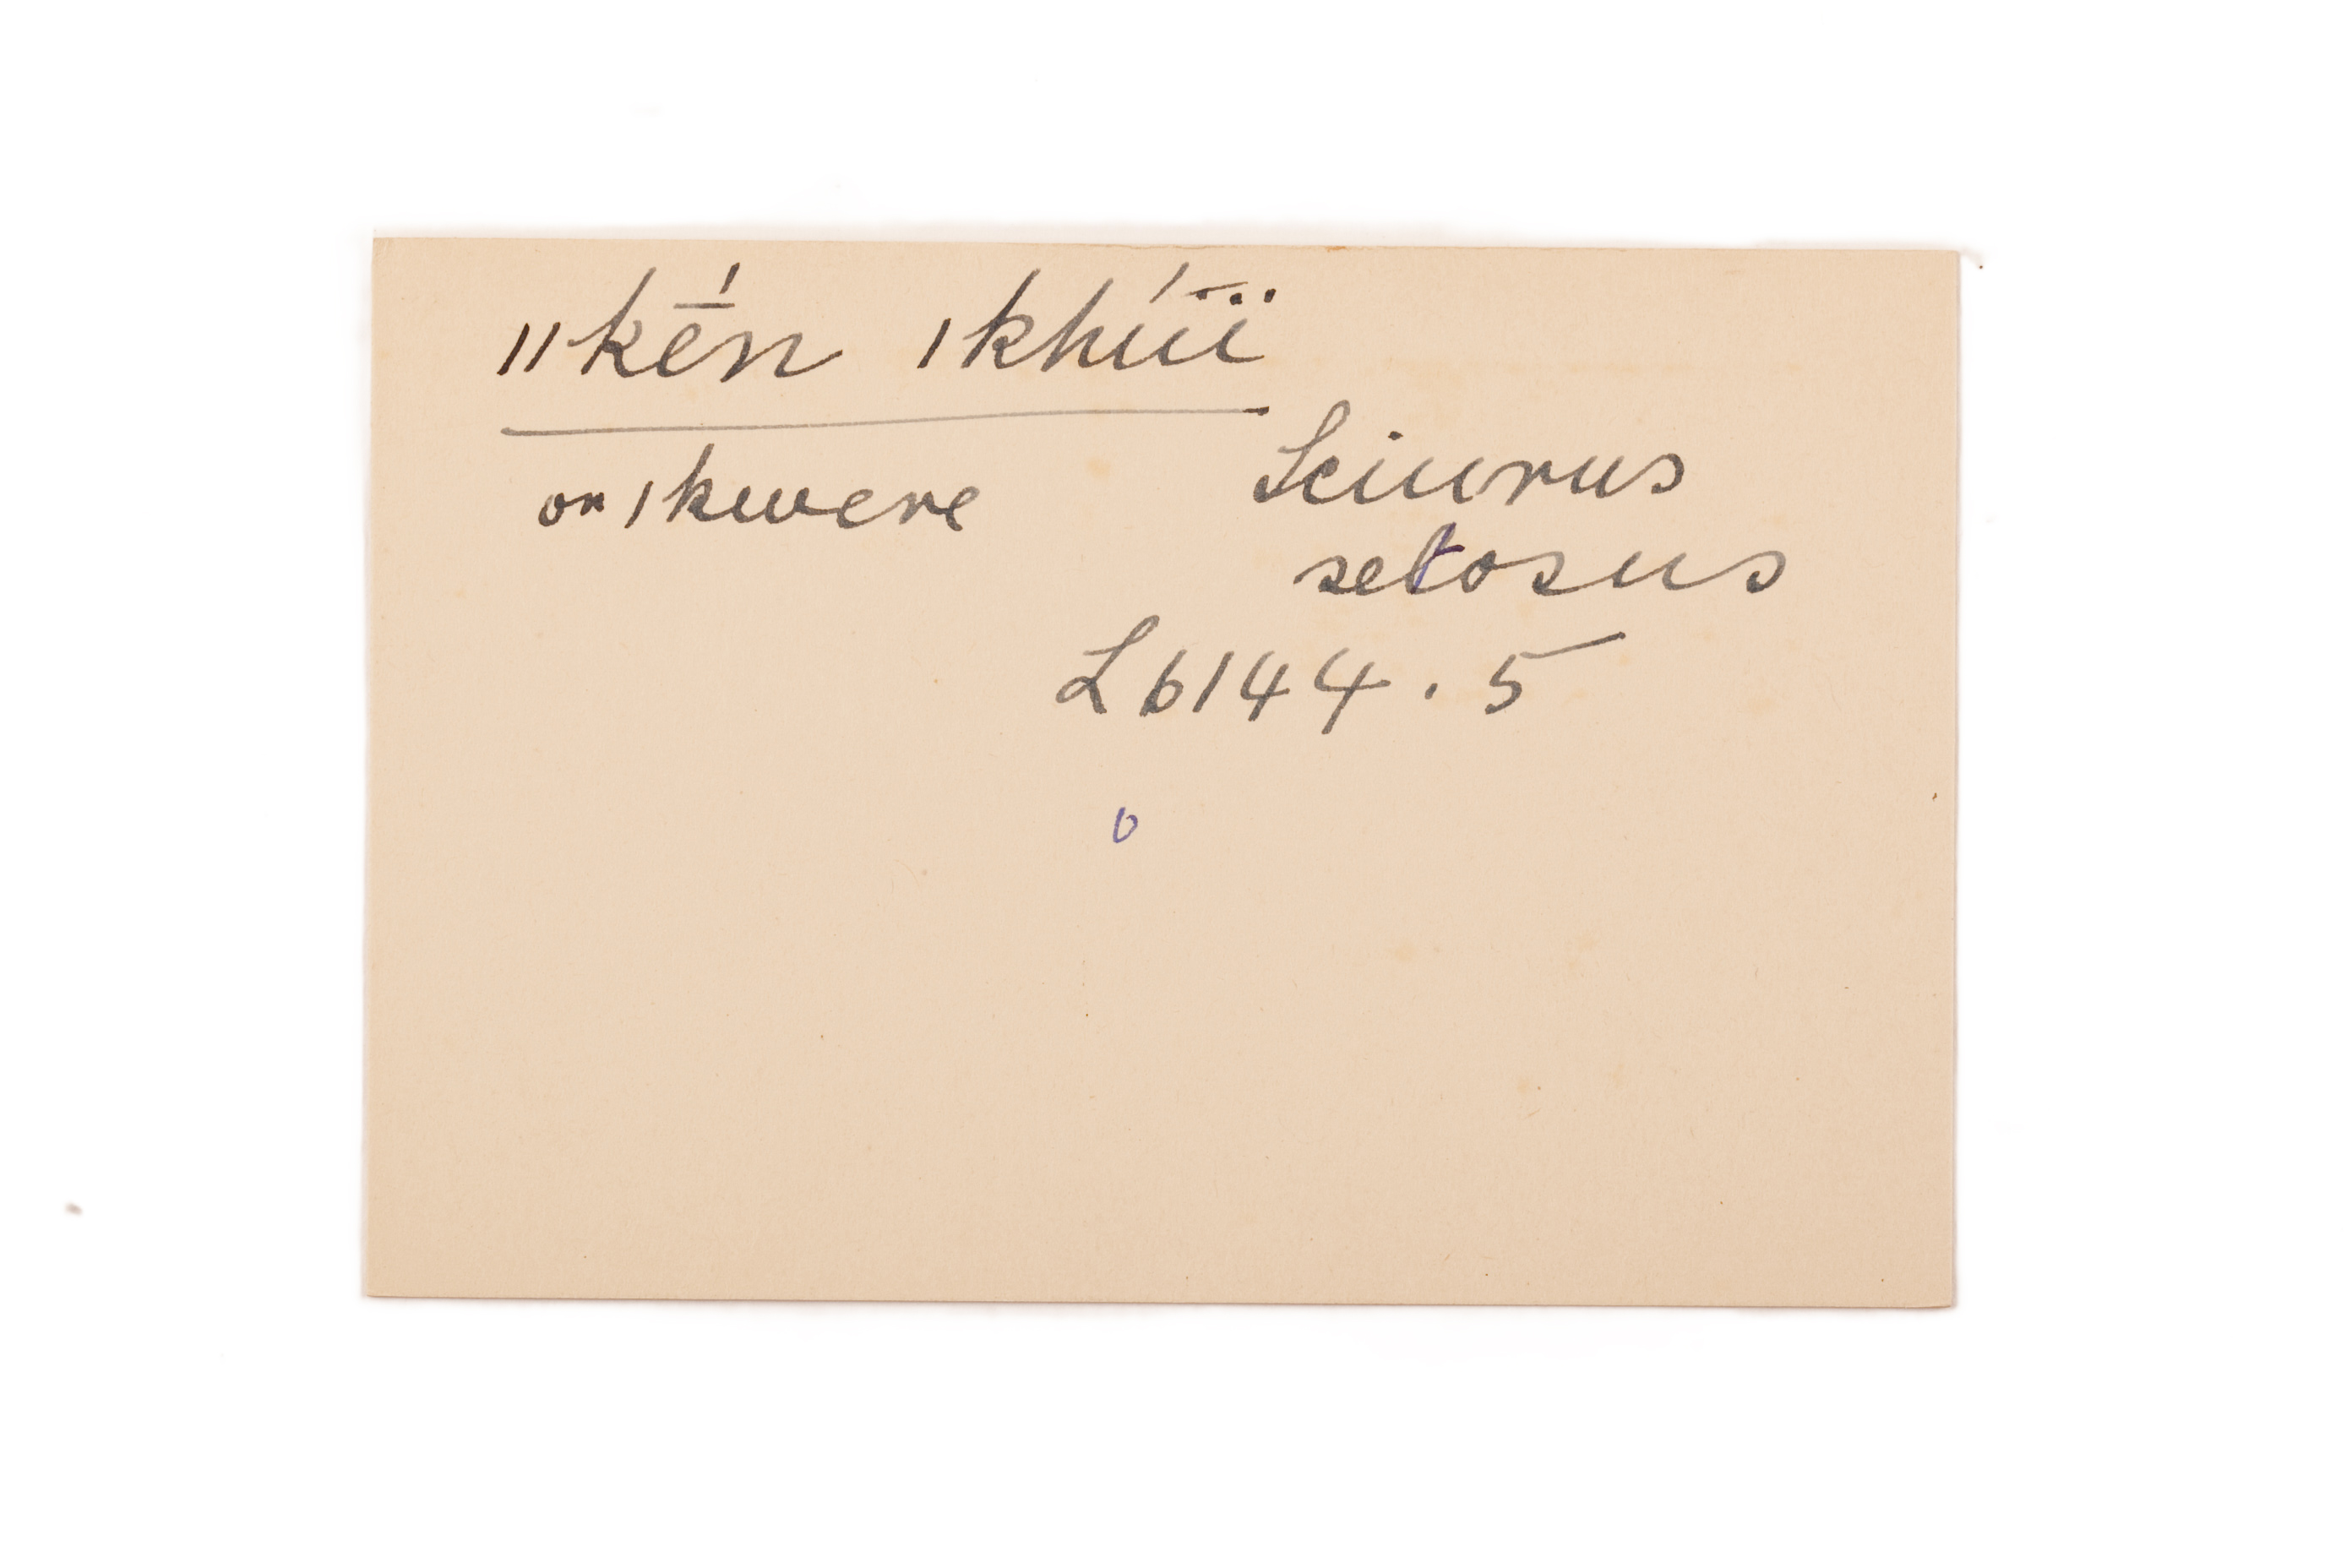 ǁkḗn ǀkhúï
or ǀkwere
Sciurus
setosus
L 6144.5
6